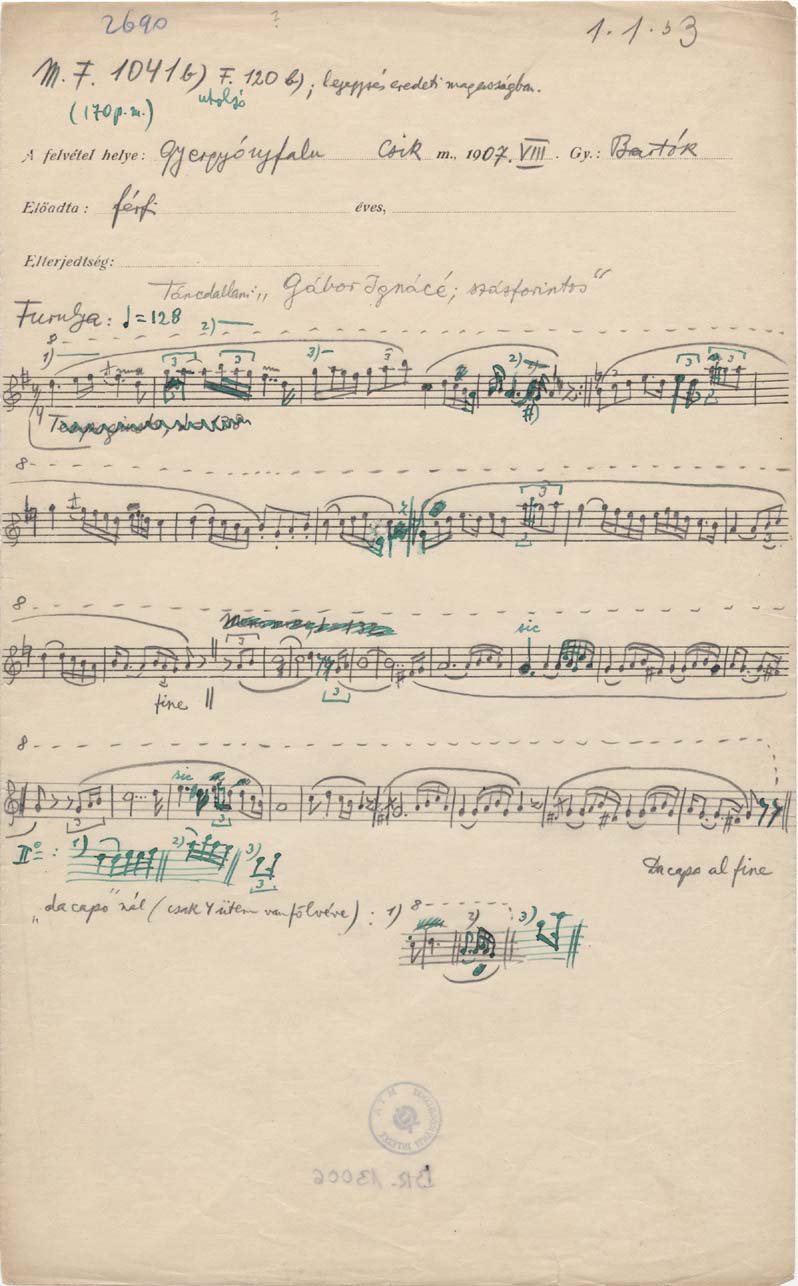 2690
1.1.53
M. F. 1041 b) F. 120 b); lejegyzés eredeti magasságban.
(170 p.m.) utolsó
A felvétel helye: Gyergyóújfalu Csik m., 1907. VIII. Gy.: Bartók
Előadta: férfi éves,
Elterjedtség:
Táncdallam: „Gábor Ignácé; százforintos"
Furulya: ♩=128 2)
8
1) 3 3 3) 3 2) 3 3
8
3 3
8
3 sic
fine 3
8
sic
3 3
IIº: 1) 2) 3)
3
Da capo al fine
„da capo" nál (csak 4 ütem van fölvéve): 1) 8 2) 3)
BR. 13006